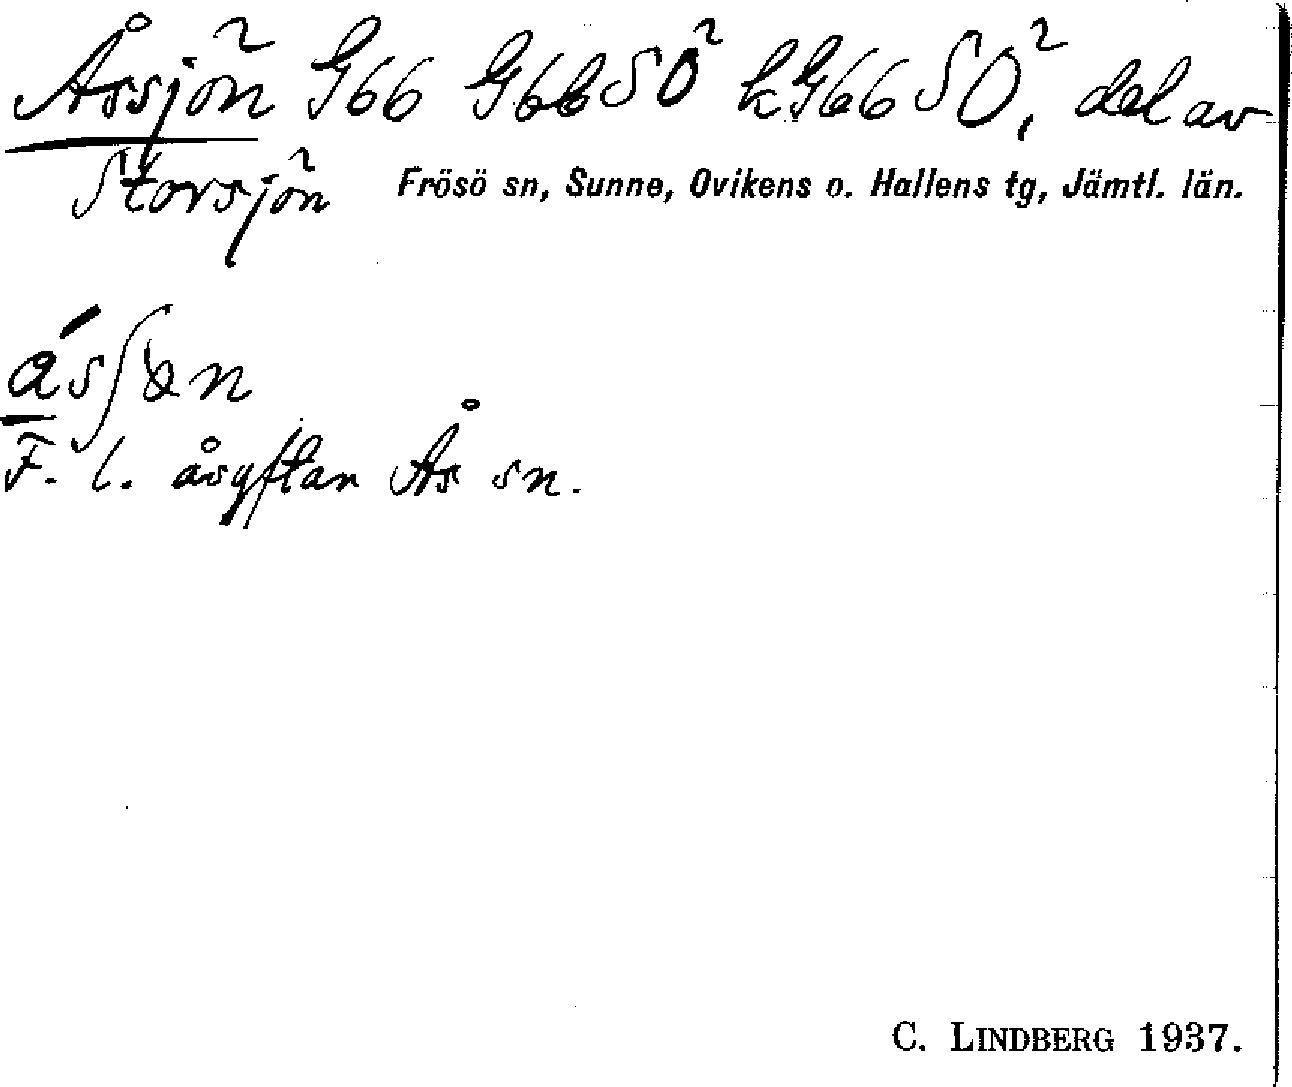 Åssjön G66 G66SÖ kG66SÖ, del av
Storsjön Frösö sn, Sunne, Ovikens o. Hallens tg, Jämtl. län.
F. l. Ås sn.
C. LINDBERG 1937.